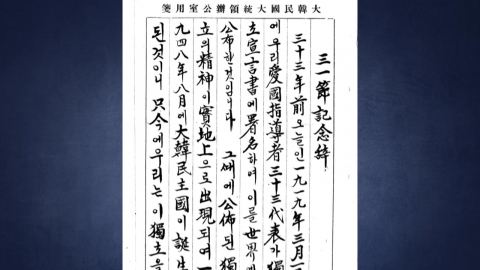 大韓民國大統領辦公室用箋
三一節記念辭
三十三年前오늘인一九一九年三月一
에우리愛國指導者三十三代表가獨
立宣言書에署名하여이를世界에
公布한것입니다 그때에公佈된獨
立의精神이實地上으로出現되여一
九四八年八月에大韓民主國이誕生
된것이니 只今에우리는이獨立을